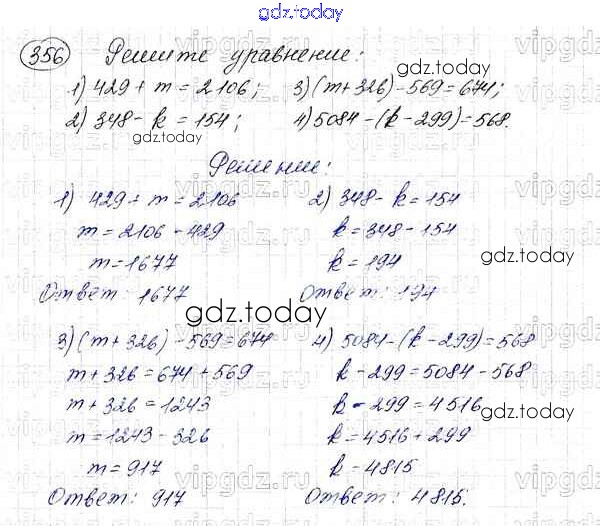 gdz.today
356 Решите уравнение:
1) 429 + m = 2106; 3) (m + 326) - 569 = 674;
2) 348 - k = 154; 4) 5084 - (k - 299) = 568.
gdz.today
gdz.today
Решение:
1) 429 + m = 2106
m = 2106 - 429
m = 1677
Ответ: 1677
2) 348 - k = 154
k = 348 - 154
k = 194
Ответ: 194
gdz.today
gdz.today
3) (m + 326) - 569 = 674
m + 326 = 674 + 569
m + 326 = 1243
m = 1243 - 326
m = 917
Ответ: 917
4) 5084 - (k - 299) = 568
k - 299 = 5084 - 568
k - 299 = 4516
k = 4516 + 299
k = 4815
Ответ: 4815.
gdz.today
gdz.today